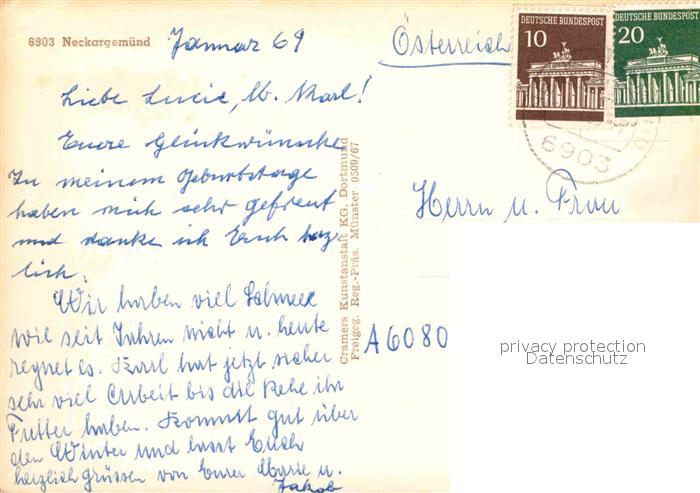 6903 Neckargemünd
Januar 69
Österreich
DEUTSCHE BUNDESPOST
10
DEUTSCHE BUNDESPOST
20
6903
Liebe Lucie, u. Karl!
Eure Glückwünsche
Zu meinem Geburtstage
haben mich sehr gefreut
und danke ich Euch herz
lich.
Wir haben viel Schnee
wie seit Jahren nicht u. heute
regnet es. Karl hat jetzt sicher
sehr viel Arbeit bis die Rehe ihr
Futter haben. Kommt gut über
den Winter und lasst Euch
herzlich grüssen von Eurer Marie u.
Jakob
Cramers Kunstanstalt KG. Dortmund
Freigeg. Reg.-Präs. Münster 0509/67
Herrn u. Frau
A6080
privacy protection
Datenschutz